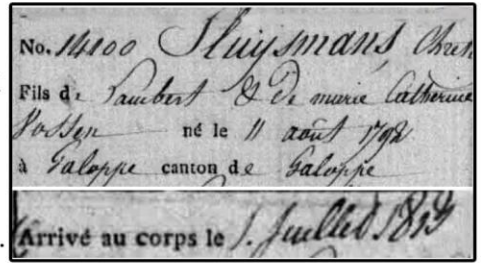 No. 14100 Sluysmans, Chret
Fils de Lambert & de marie Catherine
Vossen né le 11 août 1792
à Galoppe canton de Galoppe
Arrivé au corps le 1. Juillet 1813